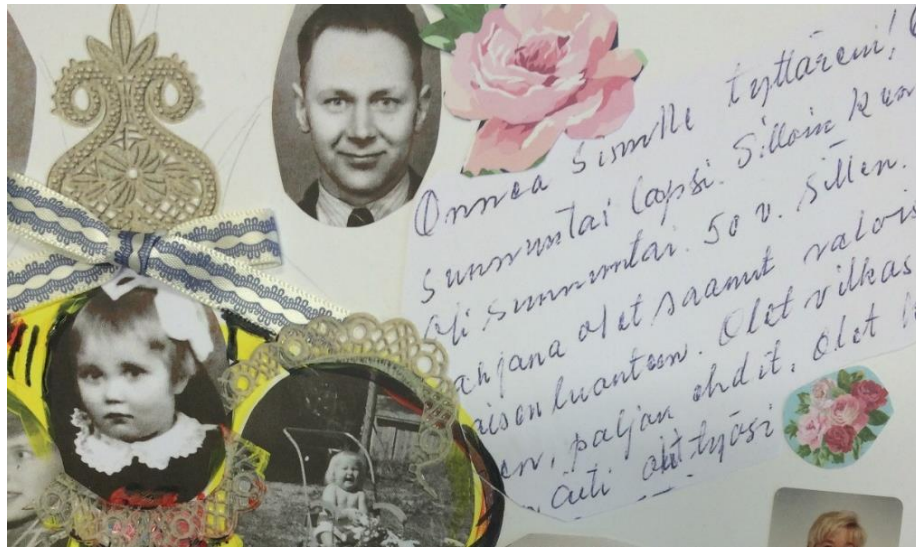 Onnea Sinulle tyttäreni!
Sunnuntai lapsi. Silloin kun
oli sunnuntai. 50 v. sitten.
olet saanut valois
luonteen. Olet vilkas
paljon ehdit, olet
työsi